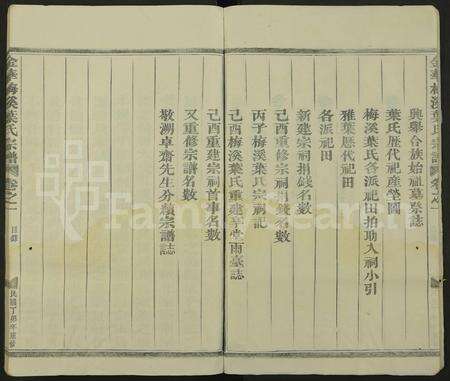 金華梅溪葉氏宗譜
卷之一
興舉合族始祖墓祭誌
葉氏歷代祀產塋圖
梅溪葉氏各派祀田拍助入祠小引
雅葉歷代祀田
各派祀田
新建宗祠捐錢名數
己酉重修宗祠捐錢名數
丙子梅溪葉氏宗祠記
己酉梅溪葉氏重建享堂兩臺誌
己酉重建宗祠首事名數
又重修宗譜名數
敬溯卓齋先生分纂宗譜誌
金華梅溪葉氏宗譜
卷之一
目錄
民國丁卯年重修